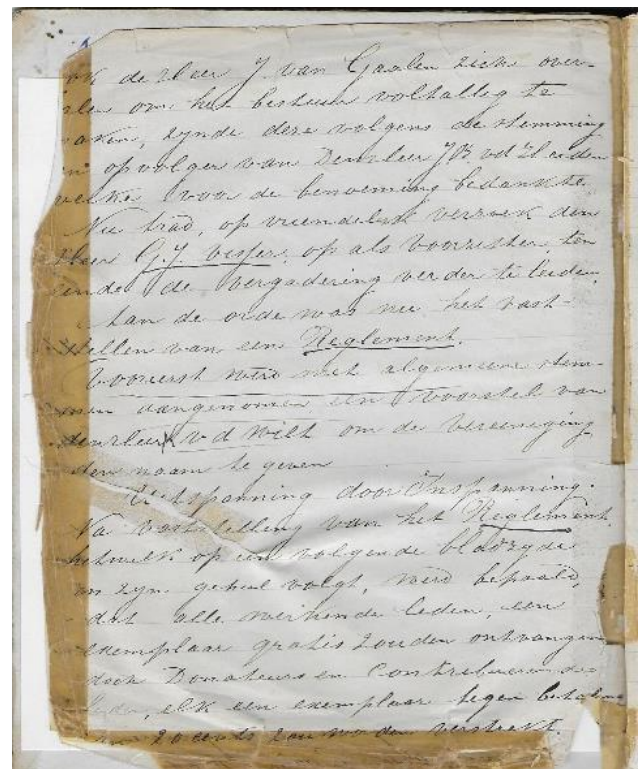 ok de Heer J. van Gaalen zich over-
om het bestuur voltallig te
maken, zynde deze volgens de stemming
opvolger van Den Heer J B. vd Heiden
welke voor de benoeming bedankte.
Nu trad, op vriendelijk verzoek den
Heer G. J. Visser, op als Voorzitter ten
einde de vergadering verder te leiden.
Aan de orde was nu het vast-
stellen van een Reglement.
Vooreerst werd met algemeene stem-
men aangenomen een voorstel van
den Heer v d Wilt om de Vereeniging
den naam te geven
Uitspanning door Inspanning.
Na vaststelling van het Reglement,
hetwelk op een volgende bladzyde
in zyn geheel volgt, werd bepaald,
dat alle werkende leden, een
exemplaar gratis zouden ontvangen
doch Donateurs en Contribueerende
leden, elk een exemplaar tegen betaling
van 20 cents zou worden verstrekt.